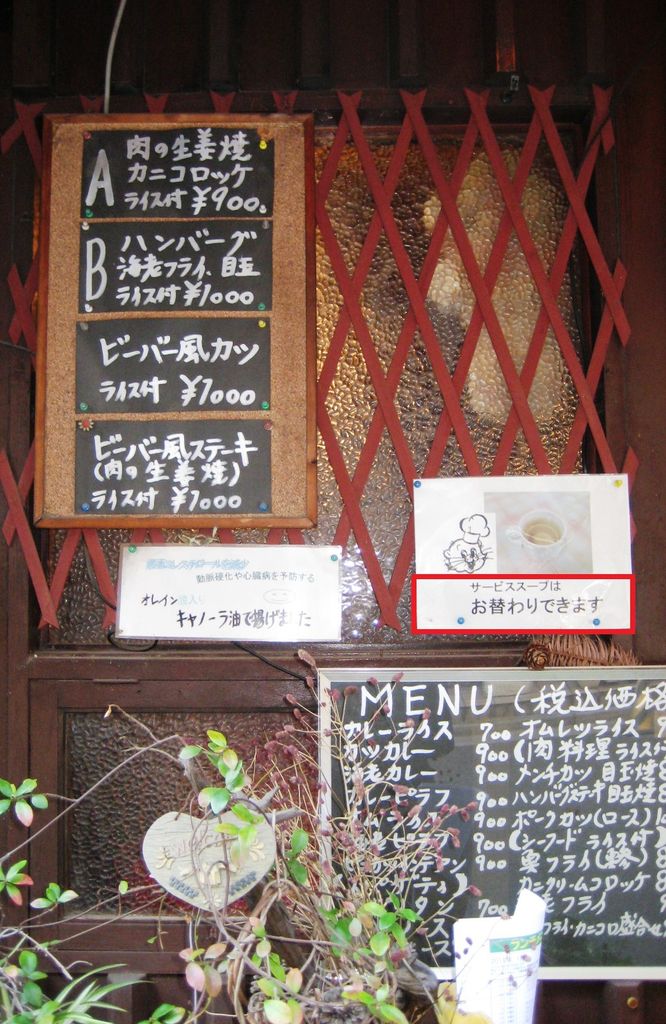 A
肉の生姜焼
カニコロッケ
ライス付 ¥900.
B
ハンバーグ
海老フライ、目玉
ライス付 ¥1000
ビーバー風カツ
ライス付 ¥1000
ビーバー風ステーキ
(肉の生姜焼)
ライス付 ¥1000
動脈硬化や心臓病を予防する
オレイン
キャノーラ油で揚げました
サービススープは
お替わりできます
MENU (税込価格
カレーライス 700
カツカレー 900
海老カレー 900
カレーピラフ 900
900
900
900
700
オムレツライス
(肉料理 ライス付
メンチカツ 目玉焼
ハンバーグステーキ目玉焼
ポークカツ(ロース)
(シーフード ライス付)
カニクリームコロッケ
フライ
フライ・カニコロ盛合せ